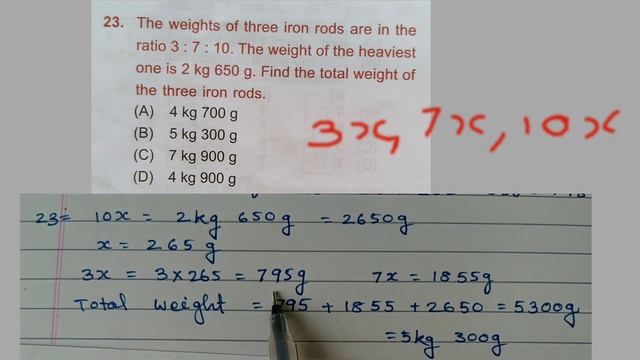 23. The weights of three iron rods are in the
ratio 3 : 7 : 10. The weight of the heaviest
one is 2 kg 650 g. Find the total weight of
the three iron rods.
(A) 4 kg 700 g
(B) 5 kg 300 g
(C) 7 kg 900 g
(D) 4 kg 900 g
3x, 7x, 10x
23= 10x = 2kg 650g = 2650g
x = 265 g
3x = 3×265 = 795g 7x = 1855g
Total weight = 795 + 1855 + 2650 = 5300g
=5kg 300g